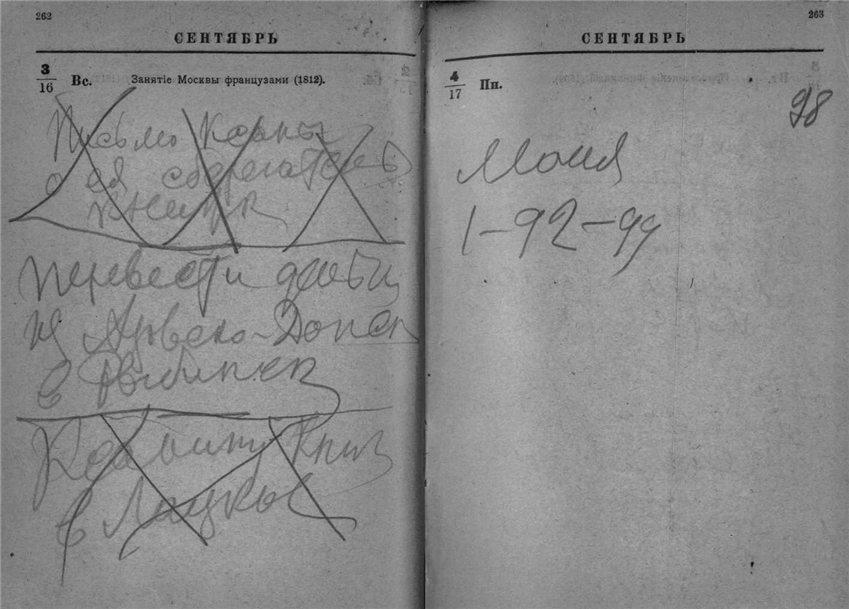 262
СЕНТЯБРЬ
3
16
Вс.
Занятіе Москвы французами (1812).
Письмо
о ея сберегатель
книжук
перевести деньги
на Азовско-Донск
в Рыбинск
книг
в
263
СЕНТЯБРЬ
4
17
Пн.
98
Моия
1-92-99